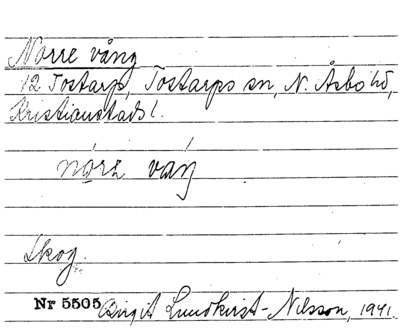 Norre vång
12 Tostarp, Tostarps sn, N. Åsbo hd,
Kristianstads l.
nórə váŋ
Skog.
Nr 5505 Birgit Lundkvist-Nilsson, 1941.